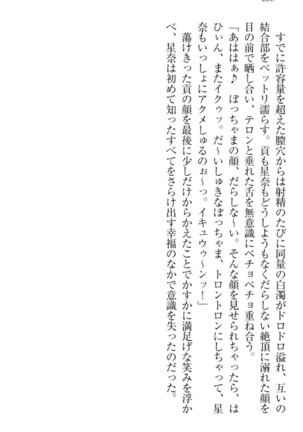 すでに許容量を超えた膣穴からは射精のたびに同量の白濁がドロドロ溢れ、互いの
結合部をベットリ濡らす。貢も星奈もどうしようもなくだらしない絶頂に溺れた顔を
目の前で晒し合い、テロンと垂れた舌を無意識にベチョベチョ重ね合う。
「あははぁ♪　ぼっちゃまの顔、だらしな～い。そんな顔を見せられちゃったら、は
ひぃん、またイクゥッ。だ～いしゅきなぼっちゃま、トロントロンにしちゃって、星
奈もいっしょにアクメしちゅるのぉ～っ。イキュウゥ～ンッ！」
蕩けきった貢の顔を最後に少しだけからかえたことでかすかに満足げな笑みを浮か
べ、星奈は初めて知ったすべてをさらけ出す幸福のなかで意識を失ったのだった。